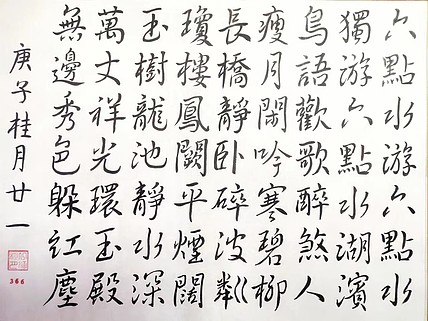 六點水游六點水
獨游六點水湖濱
鳥語歡歌醉煞人
瘦月閑吟寒碧柳
長橋靜卧碎波粼
瓊樓鳳闕平煙闊
玉樹龍池靜水深
萬丈祥光環玉殿
無邊秀色躲紅塵
庚子桂月廿一
366